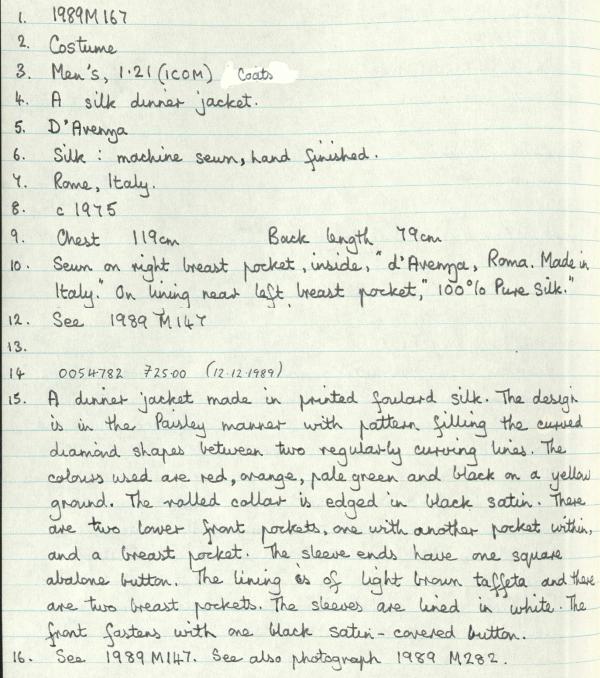 1. 1989M167
2. Costume
3. Men's, 1.21 (ICOM) Coats
4. A silk dinner jacket.
5. D'Avenza
6. Silk : machine sewn, hand finished.
7. Rome, Italy.
8. c 1975
9. Chest 119cm Back length 79cm
10. Sewn on right breast pocket, inside, "d'Avenza, Roma. Made in
Italy." On lining near left breast pocket, "100% Pure Silk."
12. See 1989 M147
13.
14 0054782 725.00 (12.12.1989)
15. A dinner jacket made in printed foulard silk. The design
is in the Paisley manner with pattern filling the curved
diamond shapes between two regularly curving lines. The
colours used are red, orange, pale green and black on a yellow
ground. The rolled collar is edged in black satin. There
are two lower front pockets, one with another pocket within,
and a breast pocket. The sleeve ends have one square
abalone button. The lining is of light brown taffeta and there
are two breast pockets. The sleeves are lined in white. The
front fastens with one black satin-covered button.
16. See 1989M147. See also photograph 1989 M282.